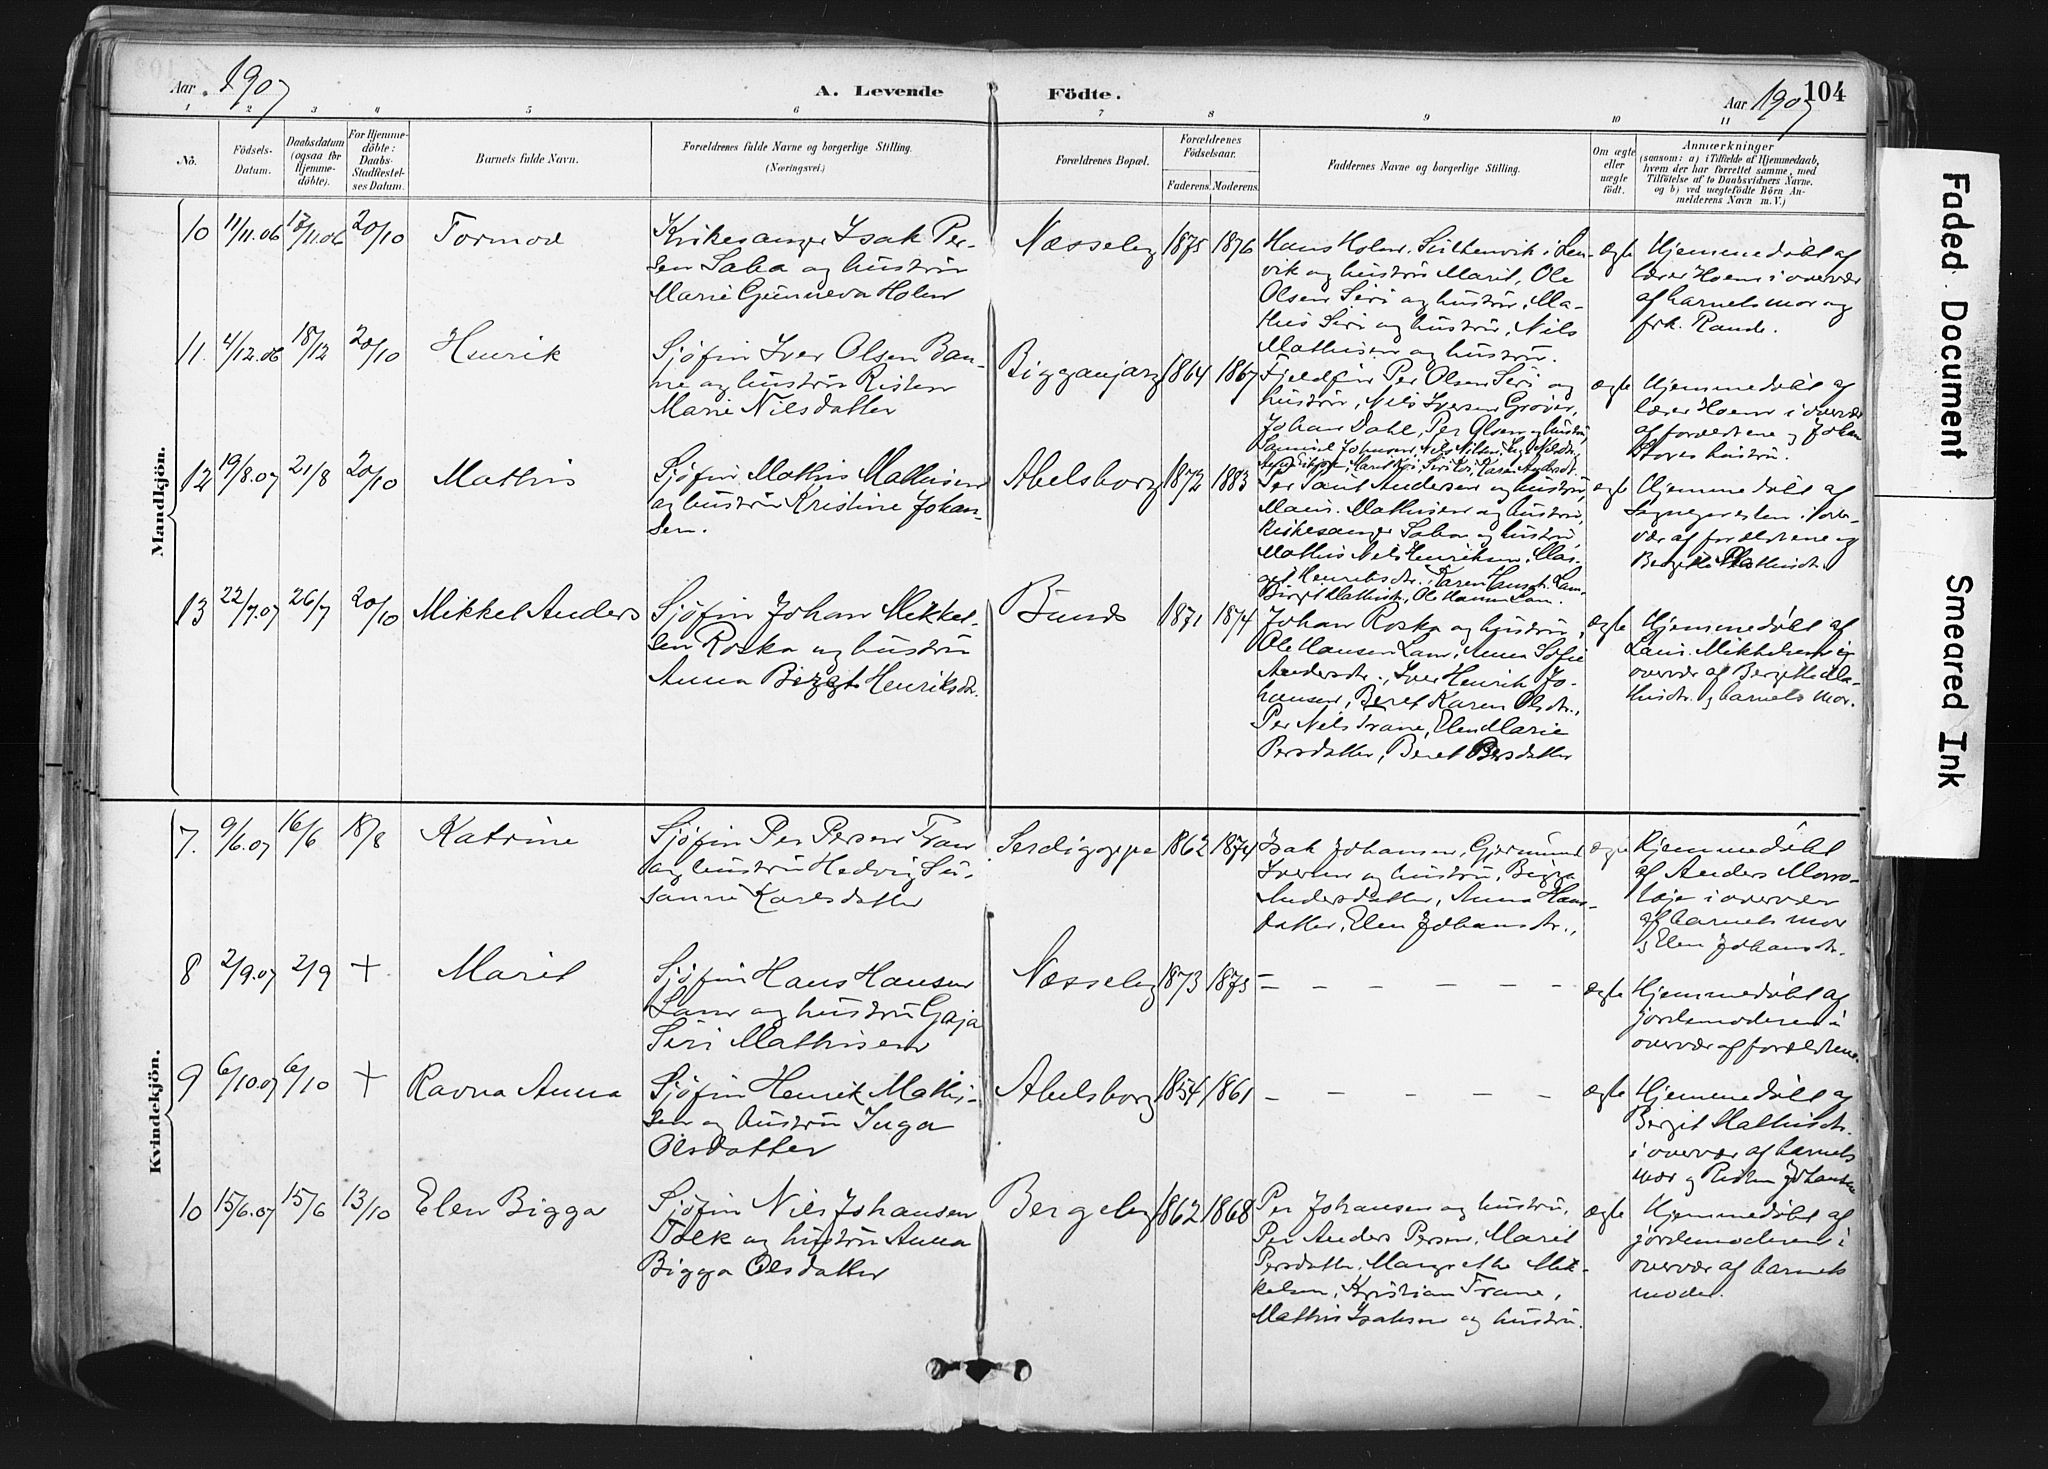 Aar 1907
A. Levende
Födte.
Aar 1907
104
1 2 3 4 5 6 7 8 9 10 11
Nö.
Födsels-
Datum.
Daabsdatum
(ogsaa for
Hjemme-
döbte).
For Hjemme-
döbte:
Daabs-
Stadfæstel-
ses Datum.
Barnets fulde Navn.
Forældrenes fulde Navne og borgerlige Stilling.
(Næringsvei.)
Forældrenes Bopæl.
Forældrenes
Födselsaar.
Faderens.
Moderens.
Faddernes Navne og borgerlige Stilling.
Om ægte
eller
uægte
födt.
Anmærkninger
(saasom: a) i Tilfælde af Hjemmedaab,
hvem der har forrettet samme, med
Tilföielse af to Daabsvidners Navne.
og b) ved uegtefödte Börn An-
melderens Navn m. V.)
Mandkjön.
10 11/11.06 17/11.06 20/10 Tormod
Kirkesanger Isak Per-
sen Saba og hustru
Marie Gunneva Holm
Næsseby 1875 1876
vik og hustru Marit, Ole
Olsen Siri og hustru, Ma-
this Siri og hustru, Nils
Mathisen og hustru.
ægte
Hjemmedøbt af
lærer Hoem i overvær
af barnets mor og
frk. Rande.
11. 4/12.06 18/12 20/10 Henrik
Sjøfin Iver Olsen Ban-
ne og hustru Risten
Marie Nilsdatter
Bigganjarg 1864 1867
Fjeldfin Per Olsen Siri og
hustru, Nils Iversen Grøver,
Johan Dahl, Per Olsen og hustru,
ægte
Hjemmedøbt af
lærer Hoem i overvær
af forældrene og Johan
hustru.
12 19/8.07 21/8 20/10 Mathis
Sjøfin Mathis Mathisen
og hustru Kristine Johan-
sen.
Abelsborg 1872 1883
Per Andersen og hustru,
Mathisen og hustru,
Kirkesanger Saba og hustru,
Mathis Nils Henriksen,
ægte
Hjemmedøbt af
i over-
vær af forældrene og
13 22/7.07 26/7 20/10 Mikkel Anders
Sjøfin Johan Mikkel-
sen Roska og hustru
Anna Birgit Henriksdr.
Bunds 1871 1874
Johan Roska og hustru,
Ole Hansen Lam, Anna Sofie
Andersdtr., Iver Henrik Jo-
hansen, Beret Karen Olsdtr.,
Per Nils Trane, Elen Marie
Persdatter, Beret Persdatter
ægte
Hjemmedøbt af
Lars Mikkelsen i
overvær af Bergitte Ma-
thisdtr. og barnets mor.
Kvindekjön.
7. 9/6.07 16/6 18/8 Katrine
Sjøfin Per Persen Tran
og hustru Hedvig Su-
sanne Karlsdatter
1862 1874
Isak Johansen, Gjermund
Iversen og hustru, Bigga
Andersdatter, Anna Hans-
datter, Elen Johansdtr.,
ægte
Hjemmedøbt
af Anders
i overvær
af barnets mor
og Elen Johansdtr.
8 2/9.07 2/9 + Marit
Sjøfin Hans Hansen
Lam og hustru Gaja
Siri Mathisen
Næsseby 1873 1875 – – – – – –
ægte
Hjemmedøbt af
jordemoderen i
overvær af forældrene.
9 6/10.07 6/10 + Ravna Anna
Sjøfin Henrik Mathi-
sen og hustru Inga
Olsdatter
Abelsborg 1854 1861 – – – – –
ægte
Hjemmedøbt af
Birgit Mathisdtr.
i overvær af barnets
mor og Risten Johansen
10 15/6.07 15/6 13/10 Elen Bigga
Sjøfin Nils Johansen
og hustru Anna
Bigga Olsdatter
Bergeby 1862 1868
Per Johansen og hustru,
Per Anders Persen, Marit
Persdatter, Margrethe Mik-
kelsen, Kristian Trane,
Mathis Isaksen og hustru.
ægte
Hjemmedøbt af
jordemoderen i
overvær af barnets
moder.
Faded Document
Smeared Ink